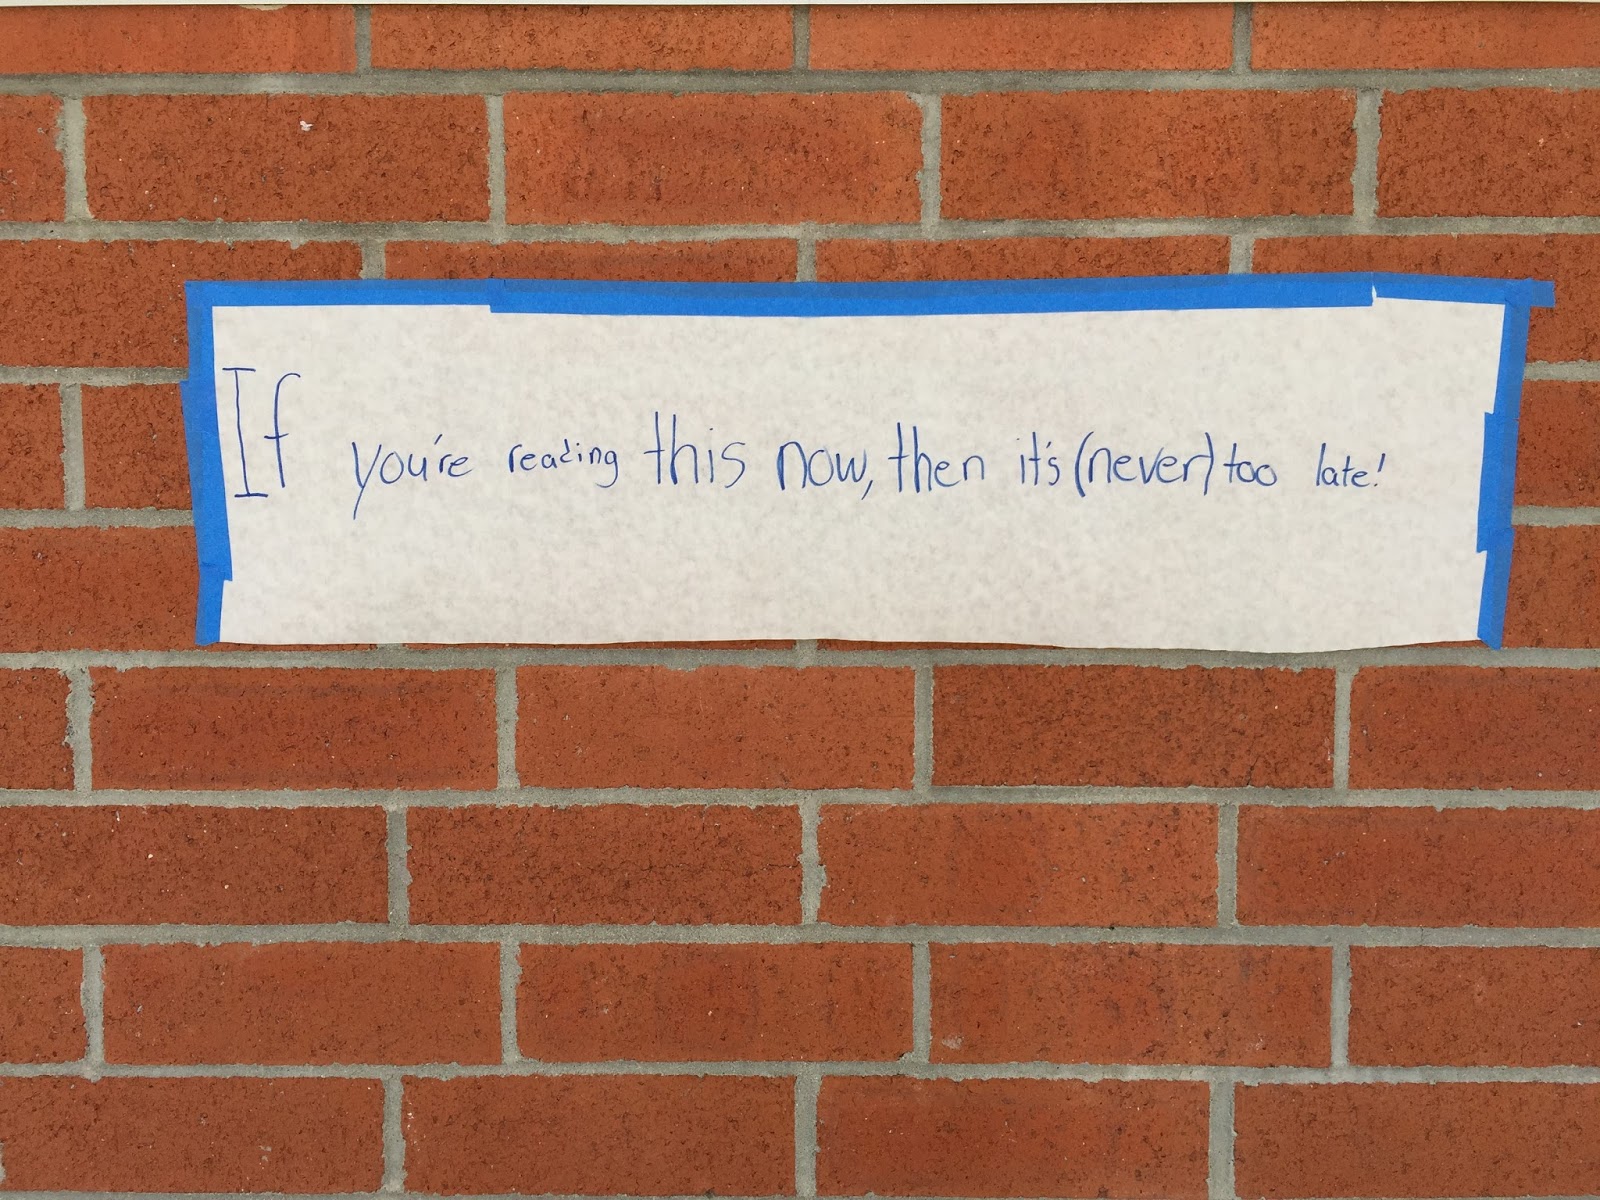 If you're reading this now, then it's (never) too late!